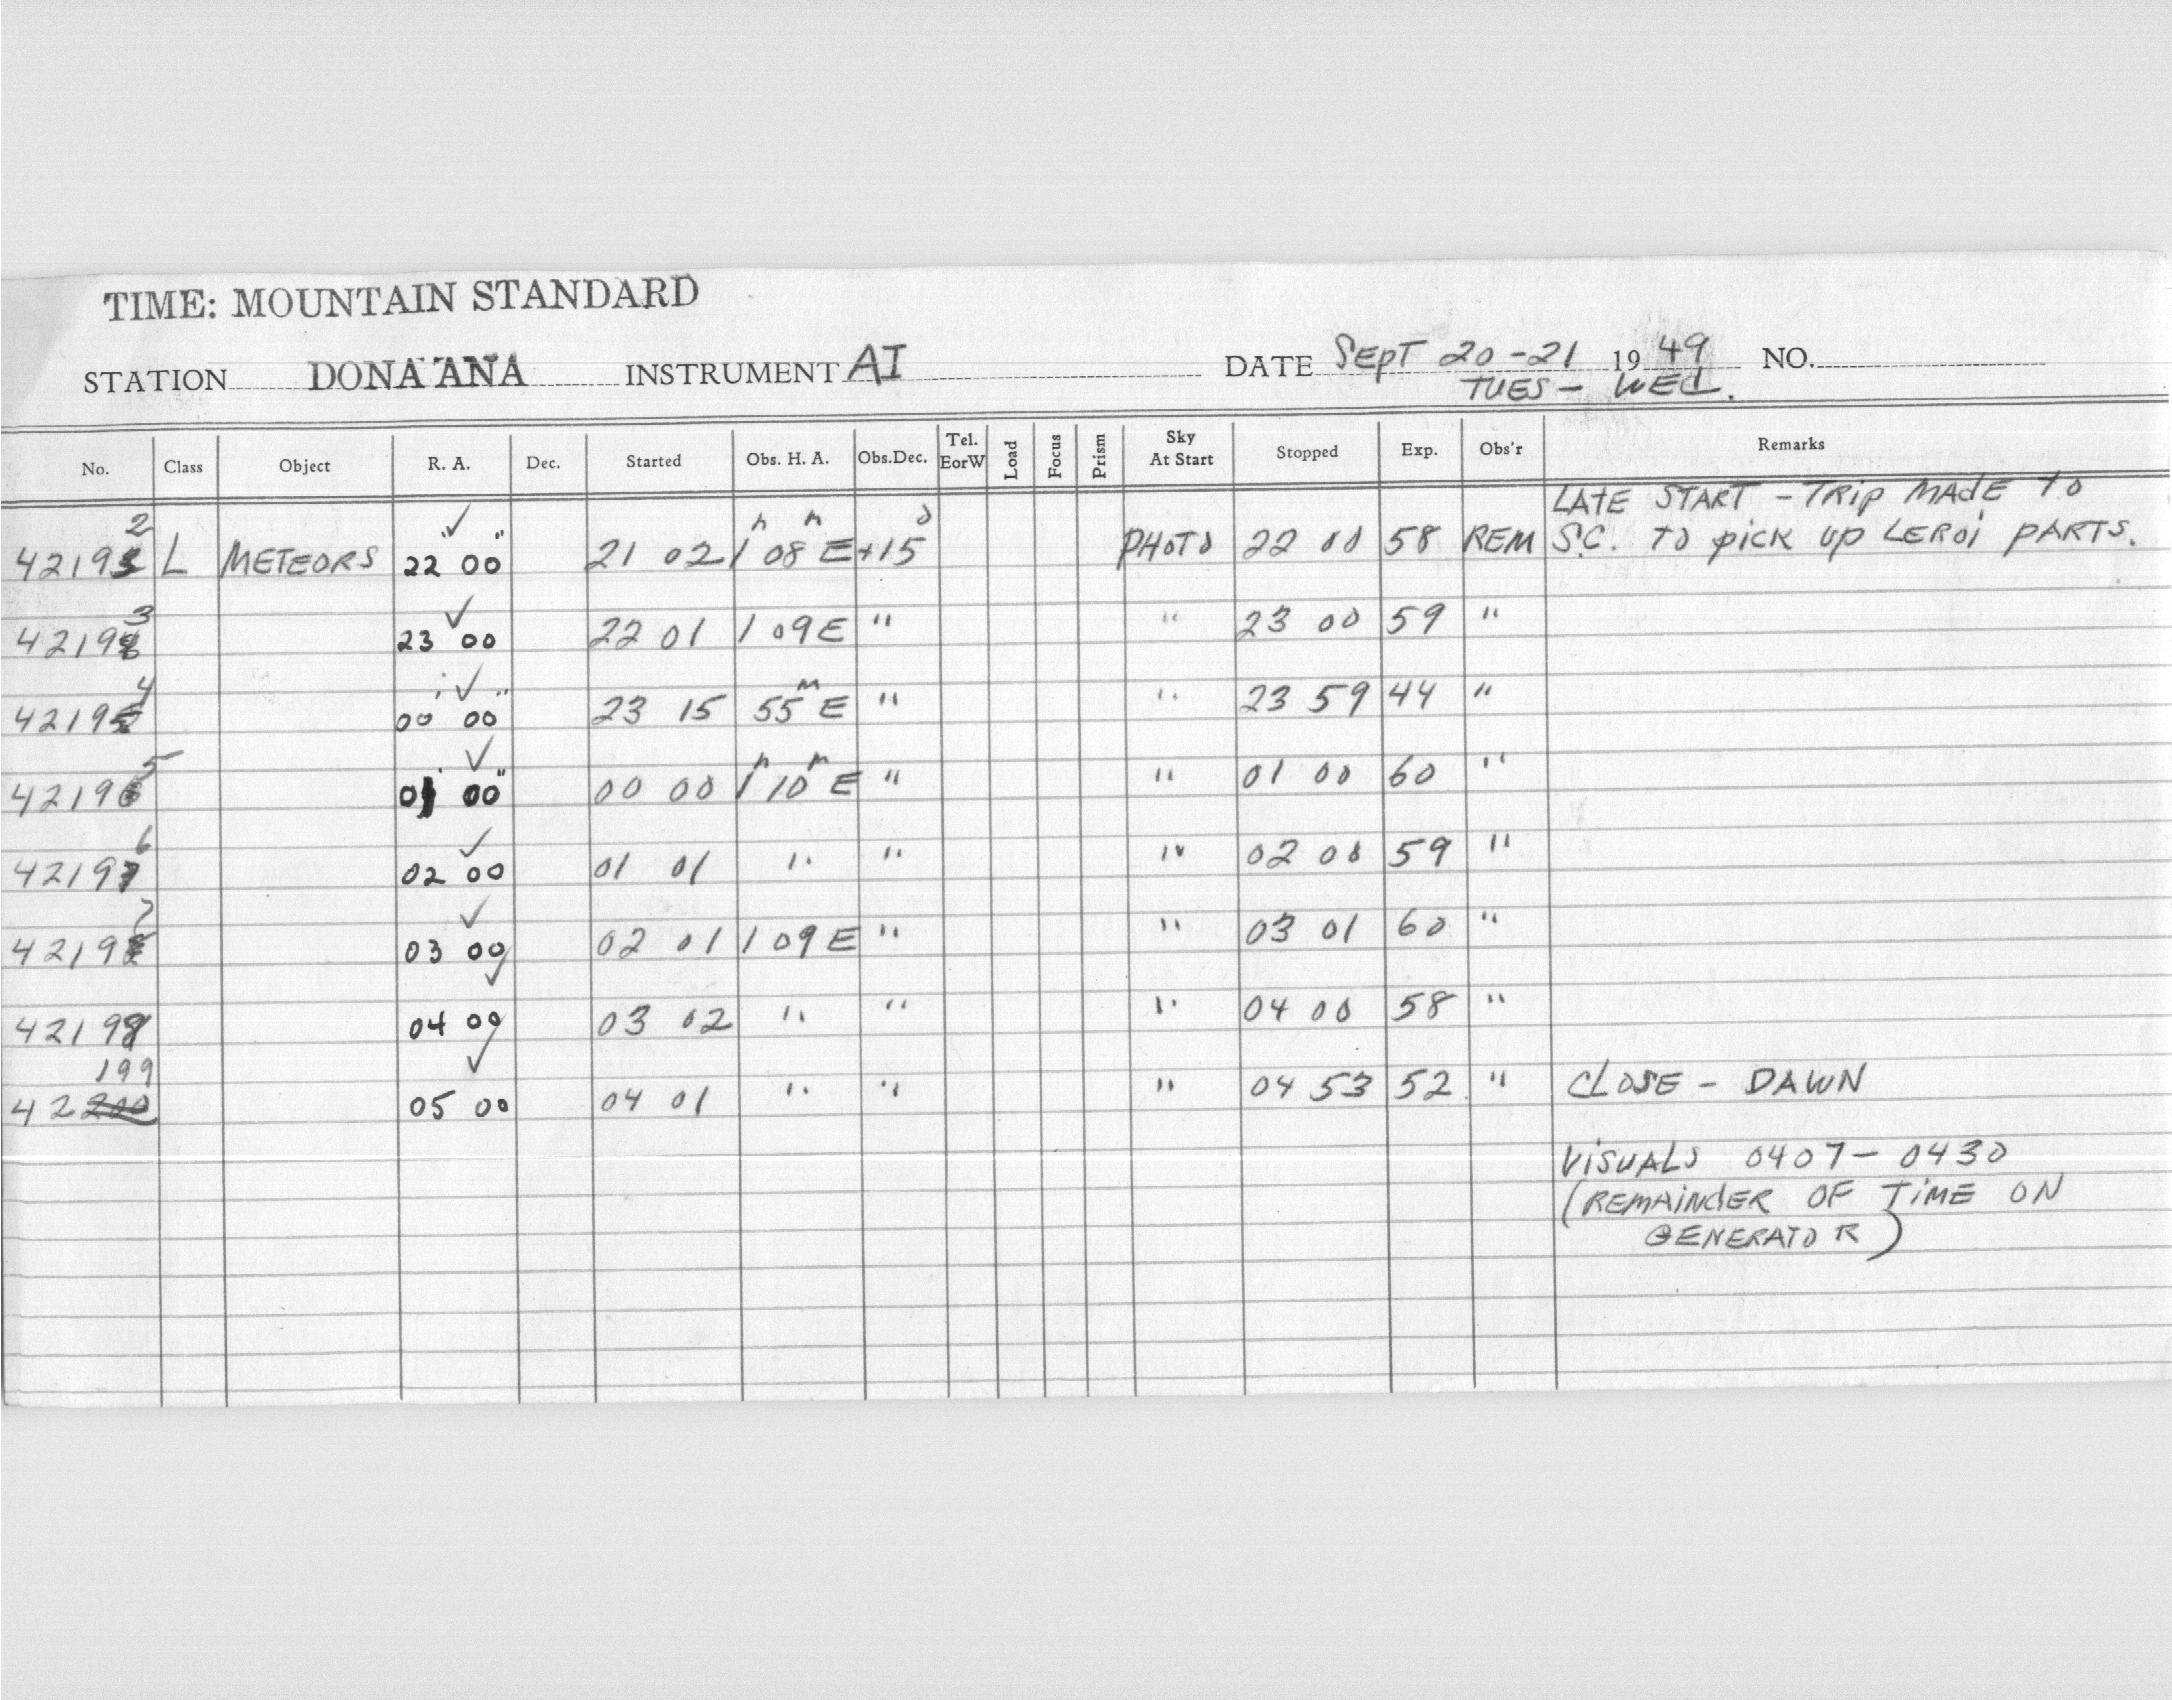 TIME: MOUNTAIN STANDARD
STATION DONA ANA INSTRUMENT AI DATE SEPT 20-21 1949 NO.
TUES - WED.
No. Class Object R. A. Dec. Started Obs. H. A. Obs.Dec. Tel. EorW Load Focus Prism Sky At Start Stopped Exp. Obs'r Remarks
LATE START - TRIP MADE TO
42192 L METEORS 22 00 21 02 1h 08m E +15° PHOTO 22 00 58 REM S.C. TO PICK UP LEROI PARTS.
42193 23 00 22 01 1 09 E " " 23 00 59 "
42194 00 00 23 15 55m E " " 23 59 44 "
42195 01 00 00 00 1h 10m E " " 01 00 60 "
42196 02 00 01 01 " " " 02 00 59 "
42197 03 00 02 01 1 09 E " " 03 01 60 "
42198 04 00 03 02 " " " 04 00 58 "
199
42200 05 00 04 01 " " " 04 53 52 " CLOSE - DAWN
VISUALS 0407 - 0430
(REMAINDER OF TIME ON
GENERATOR)